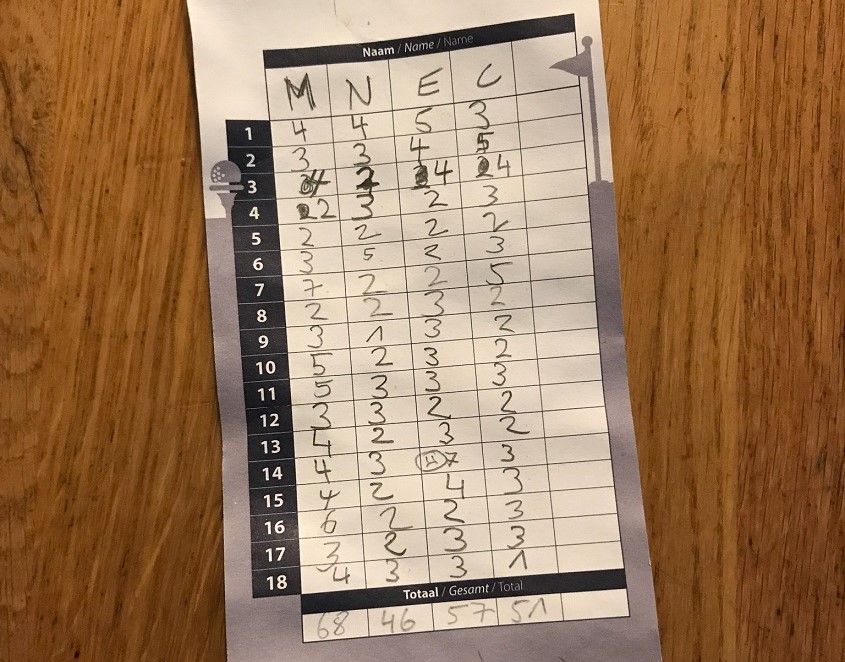 Naam / Name / Name
M N E C
1 4 4 5 3
2 3 3 4 5
3 4 2 4 4
4 2 3 2 3
5 2 2 2 2
6 3 5 2 3
7 7 2 2 5
8 2 2 3 2
9 3 1 3 2
10 5 2 3 2
11 5 3 3 3
12 3 3 2 2
13 4 2 3 2
14 4 3 7 3
15 4 2 4 3
16 6 2 2 3
17 3 2 3 3
18 4 3 3 1
Totaal / Gesamt / Total
68 46 57 51